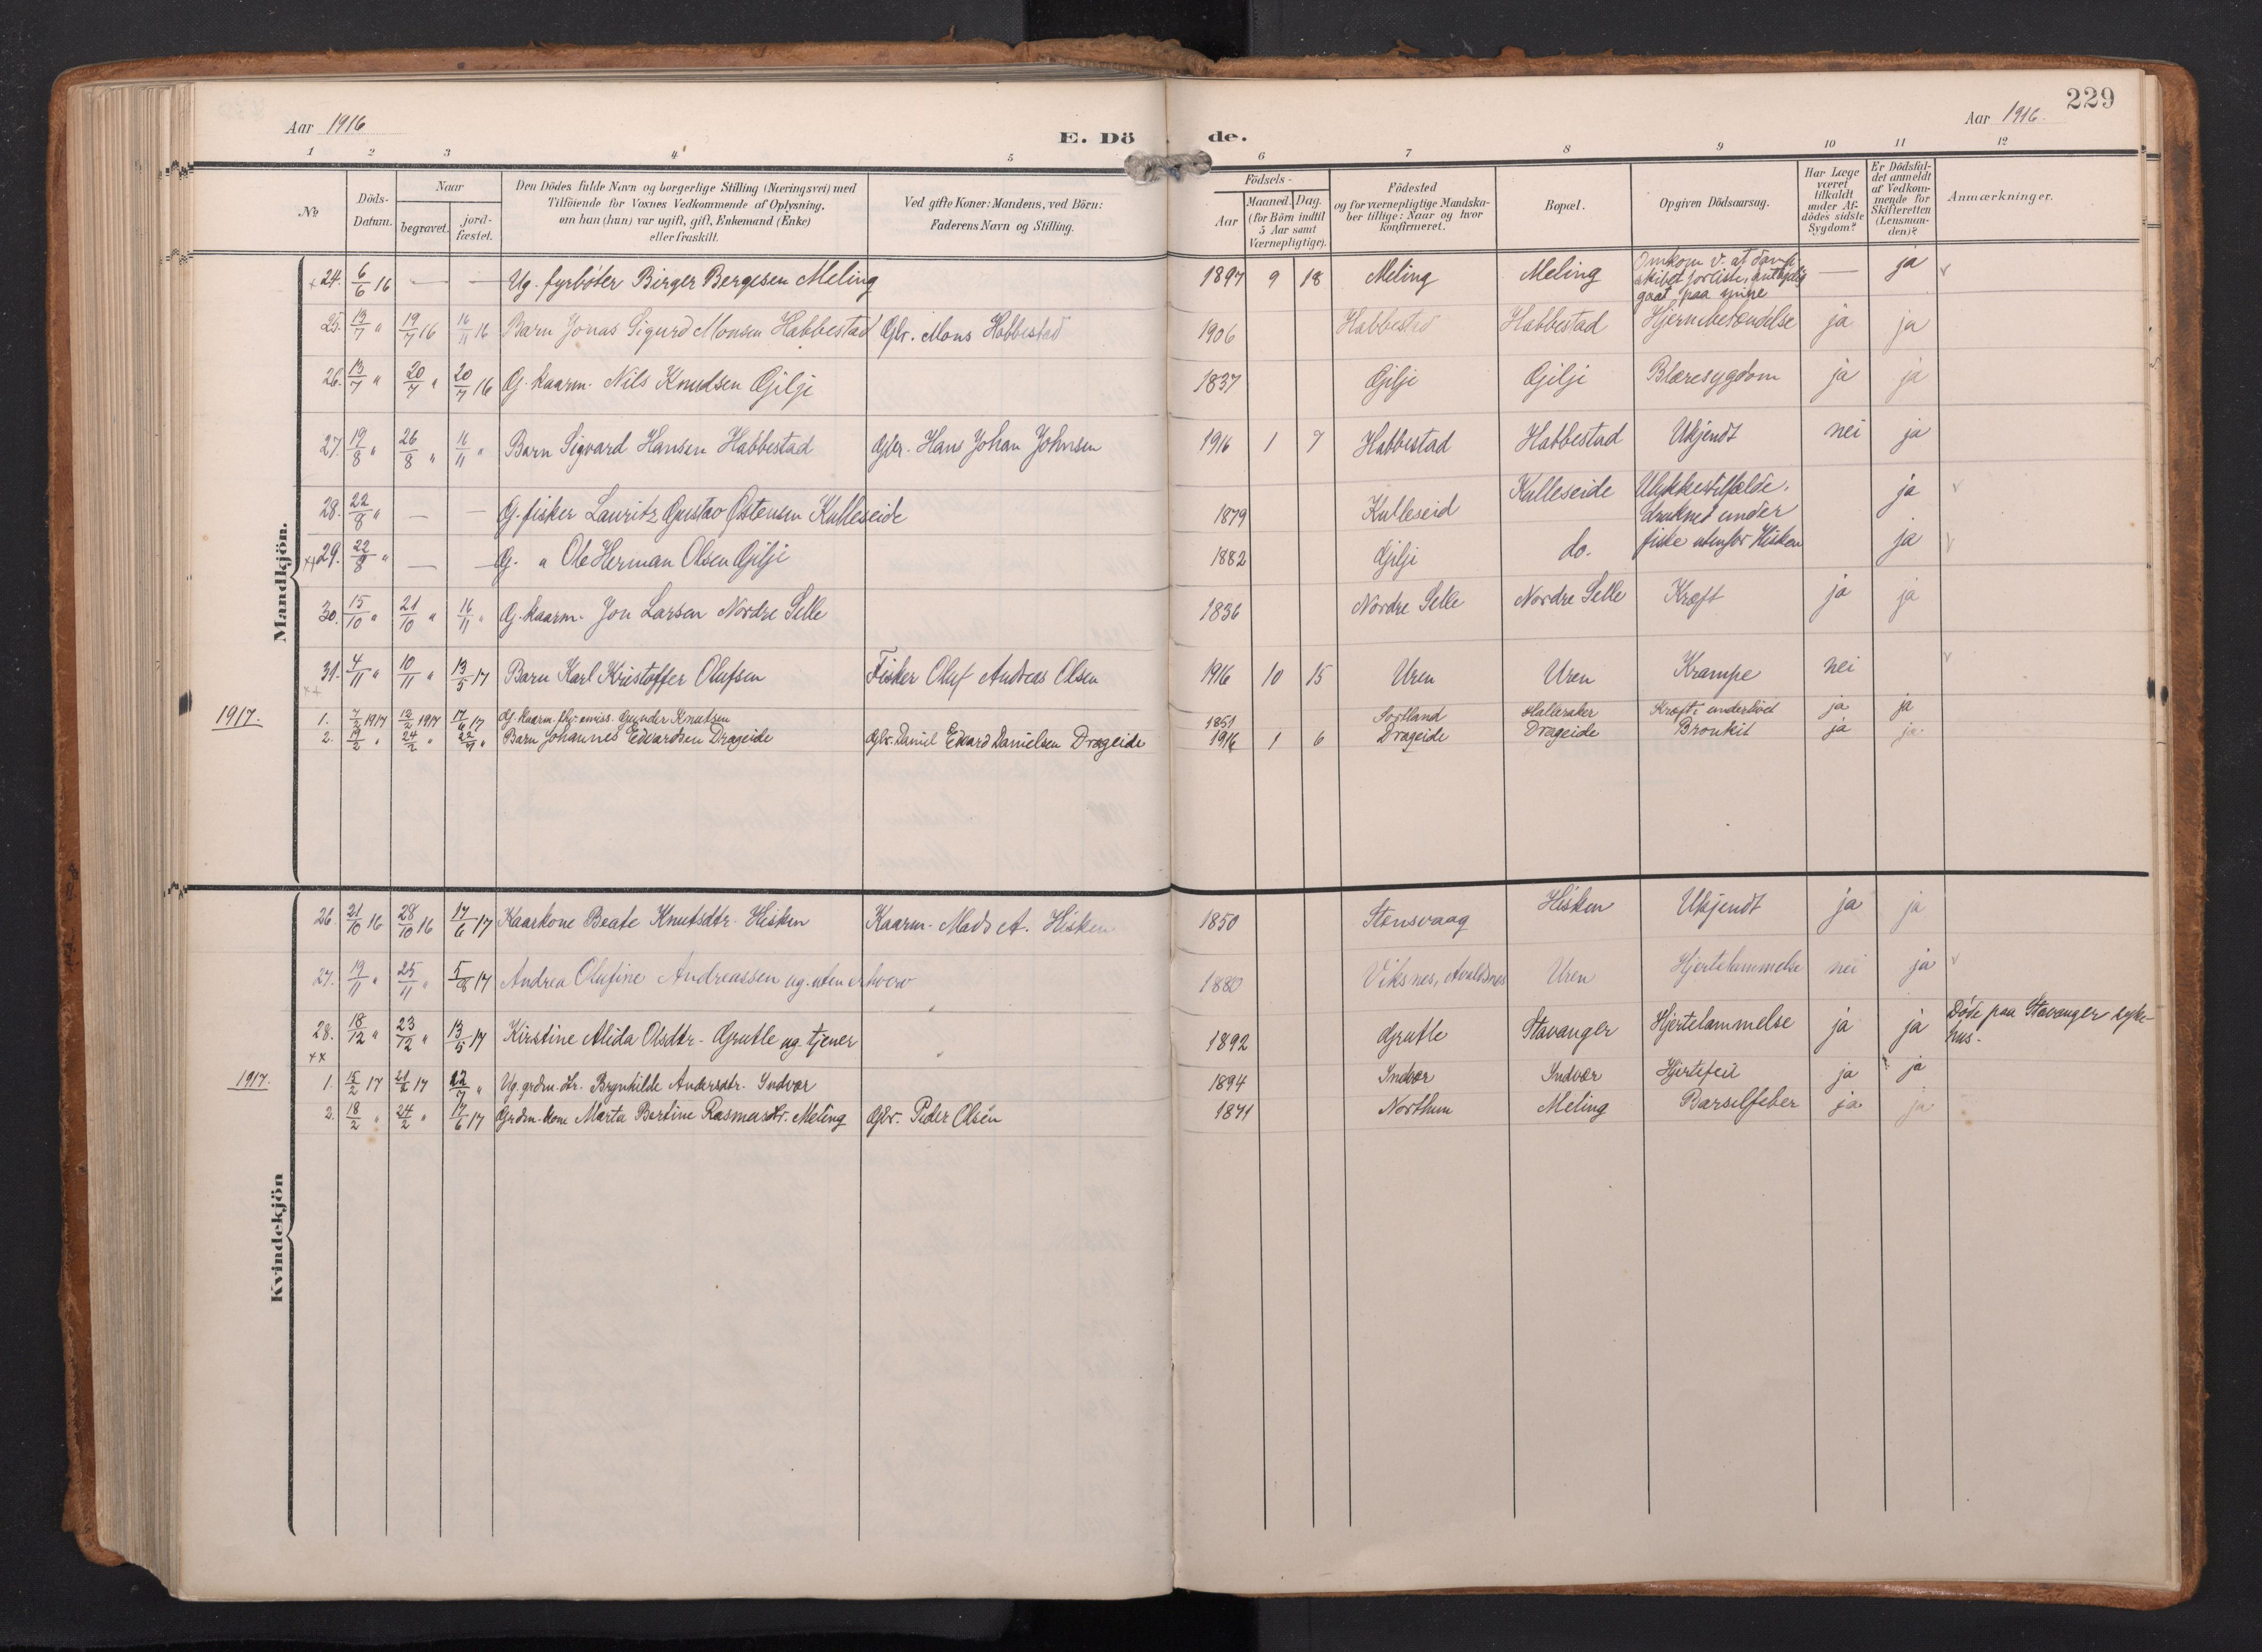 229
Aar 1916
E. Dö de.
Aar 1916.
1 2 3 4 5 6 7 8 9 10 11 12
No
Döds-Datum.
Naar
begravet.
jord-fæstet.
Den Dödes fulde Navn og borgerlige Stilling (Næringsvei) med
Tilföiende for Voxnes Vedkommende af Oplysning,
om han (hun) var ugift, gift, Enkemand (Enke)
eller fraskilt.
Ved gifte Koner: Mandens, ved Börn:
Faderens Navn og Stilling.
Födsels-
Aar
Maaned. Dag.
(for Börn indtil
5 Aar samt
Værnepligtige).
Födested
og for værnepligtige Mandska-
ber tillige: Naar og hvor
konfirmeret.
Bopæl.
Opgiven Dödsaarsag.
Har Læge
været
tilkaldt
under Af-
dödes sidste
Sygdom?
Er Dödsfal-
det anmeldt
af Vedkom-
mende for
Skifteretten
(Lensman-
den)?
Anmærkninger.
Mandkjön.
24. 6/6 16 — — Ug. fyrböter Birger Bergesen Meling 1897 9 18 Meling Meling Omkom v. at damp-
skibet forliste, antagelig
gaat paa mine — ja
25. 13/7 " 19/7 16 16/11 16 Barn Jonas Sigurd Monsen Habbestad Gbr. Mons Habbestad 1906 Habbestad Habbestad Hjernebetændelse ja ja
26. 13/7 " 20/7 " 20/7 16 G. kaarm. Nils Knudsen Gilje 1837 Gilje Gilje Blæresygdom ja ja
27. 19/8 " 26/8 " 16/11 " Barn Sigvard Hansen Habbestad Gbr. Hans Johan Johnsen 1916 1 7 Habbestad Habbestad Ukjendt nei ja
28. 22/8 " — — G. fisker Lauritz Gustav Østensen Kulleseide 1879 Kulleseid Kulleseide Ulykkestilfælde, ja
druknet under
29. 22/8 " — — G. " Ole Herman Olsen Gilje 1882 Gilje do. fiske utenfor Hisken ja
30. 15/10 " 21/10 " 16/11 " G. kaarm. Jon Larsen Nordre Selle 1836 Nordre Selle Nordre Selle Kræft ja ja
31. 4/11 " 10/11 " 13/5 17 Barn Karl Kristoffer Olufsen Fisker Oluf Andreas Olsen 1916 10 15 Uren Uren Krampe nei
1917.
1. 7/2 1917 12/2 1917 17/6 17 G. kaarm. fhv. emiss. Gunder Knutsen 1851 Sortland Halleraker Kræft i underlivet ja ja
2. 19/2 " 24/2 " 22/7 " Barn Johannes Edvardsen Drageide Gbr. Daniel Edvard Danielsen Drageide 1916 1 6 Drageide Drageide Bronkit ja ja
Kvindekjön
26 21/10 16 28/10 16 17/6 17 Kaarkone Beate Knutsdtr. Hisken Kaarm. Mads A. Hisken 1850 Stensvaag Hisken Ukjendt ja ja
27. 19/11 " 25/11 " 5/8 17 Andrea Olufine Andreassen ug. uten erhverv 1880 Viksnes, Avaldsnes Uren Hjertelammelse nei ja
28. 18/12 " 23/12 " 13/5 17 Kirstine Alida Olsdtr. Grutle ug. tjener 1892 Grutle Stavanger Hjertelammelse ja ja Døde paa Stavanger syke-
hus.
1917.
1. 15/2 17 21/2 17 22/7 " Ug. grdm. dtr. Brynhilde Andersdtr. Indvær 1894 Indvær Indvær Hjertefeil ja ja
2. 18/2 " 24/2 " 17/6 17 Grdm. kone Marta Bertine Rasmusdtr. Meling Gbr. Peder Olsen 1871 Northun Meling Barselfeber ja ja